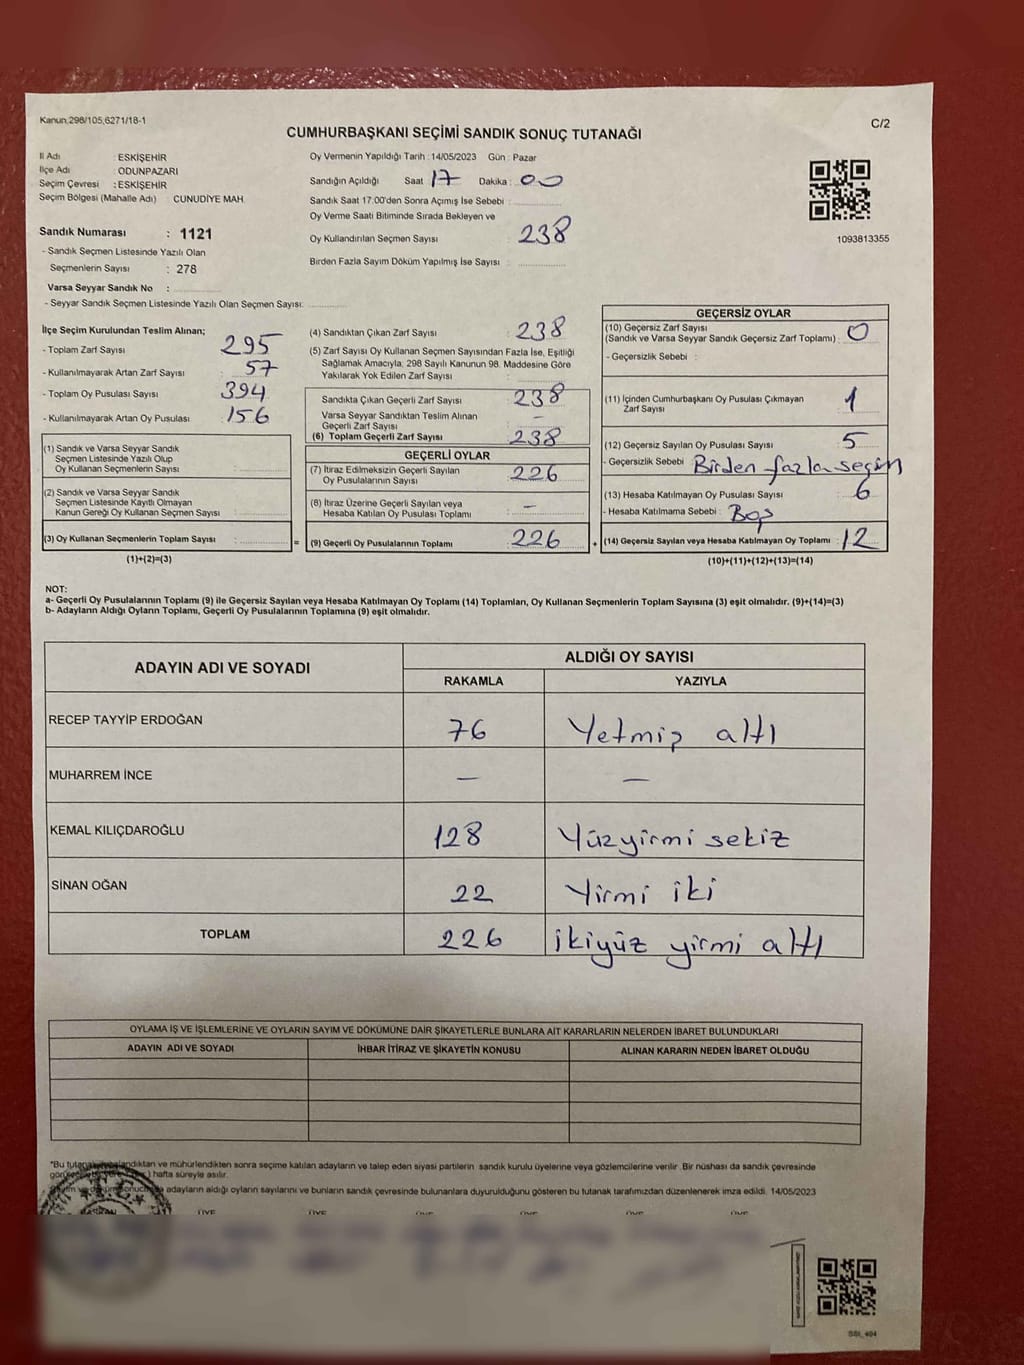 Kanun,298/105,6271/18-1
C/2
CUMHURBAŞKANI SEÇİMİ SANDIK SONUÇ TUTANAĞI
İl Adı : ESKİŞEHİR
İlçe Adı : ODUNPAZARI
Seçim Çevresi : ESKİŞEHİR
Seçim Bölgesi (Mahalle Adı) : CUNUDİYE MAH.
Sandık Numarası : 1121
- Sandık Seçmen Listesinde Yazılı Olan
Seçmenlerin Sayısı : 278
Varsa Seyyar Sandık No :
- Seyyar Sandık Seçmen Listesinde Yazılı Olan Seçmen Sayısı:
Oy Vermenin Yapıldığı Tarih : 14/05/2023 Gün : Pazar
Sandığın Açıldığı Saat 17 Dakika : 00
Sandık Saat 17.00'den Sonra Açımış İse Sebebi :
Oy Verme Saati Bitiminde Sırada Bekleyen ve
Oy Kullandırılan Seçmen Sayısı : 238
Birden Fazla Sayım Döküm Yapılmış İse Sayısı :
1093813355
İlçe Seçim Kurulundan Teslim Alınan;
- Toplam Zarf Sayısı : 295
- Kullanılmayarak Artan Zarf Sayısı : 57
- Toplam Oy Pusulası Sayısı : 394
- Kullanılmayarak Artan Oy Pusulası : 156
(1) Sandık ve Varsa Seyyar Sandık
Seçmen Listesinde Yazılı Olup
Oy Kullanan Seçmenlerin Sayısı :
(2) Sandık ve Varsa Seyyar Sandık
Seçmen Listesinde Kayıtlı Olmayan
Kanun Gereği Oy Kullanan Seçmen Sayısı :
(3) Oy Kullanan Seçmenlerin Toplam Sayısı :
(1)+(2)=(3)
=
(4) Sandıktan Çıkan Zarf Sayısı : 238
(5) Zarf Sayısı Oy Kullanan Seçmen Sayısından Fazla İse, Eşitliği
Sağlamak Amacıyla; 298 Sayılı Kanunun 98. Maddesine Göre
Yakılarak Yok Edilen Zarf Sayısı :
Sandıkta Çıkan Geçerli Zarf Sayısı : 238
Varsa Seyyar Sandıktan Teslim Alınan
Geçerli Zarf Sayısı : —
(6) Toplam Geçerli Zarf Sayısı : 238
GEÇERLİ OYLAR
(7) İtiraz Edilmeksizin Geçerli Sayılan
Oy Pusulalarının Sayısı : 226
(8) İtiraz Üzerine Geçerli Sayılan veya
Hesaba Katılan Oy Pusulası Toplamı : —
(9) Geçerli Oy Pusulalarının Toplamı : 226
+
GEÇERSİZ OYLAR
(10) Geçersiz Zarf Sayısı
(Sandık ve Varsa Seyyar Sandık Geçersiz Zarf Toplamı) : 0
- Geçersizlik Sebebi :
(11) İçinden Cumhurbaşkanı Oy Pusulası Çıkmayan
Zarf Sayısı : 1
(12) Geçersiz Sayılan Oy Pusulası Sayısı : 5
- Geçersizlik Sebebi : Birden fazla seçim
(13) Hesaba Katılmayan Oy Pusulası Sayısı : 6
- Hesaba Katılmama Sebebi : Boş
(14) Geçersiz Sayılan veya Hesaba Katılmayan Oy Toplamı : 12
(10)+(11)+(12)+(13)=(14)
NOT:
a- Geçerli Oy Pusulalarının Toplamı (9) ile Geçersiz Sayılan veya Hesaba Katılmayan Oy Toplamı (14) Toplamları, Oy Kullanan Seçmenlerin Toplam Sayısına (3) eşit olmalıdır. (9)+(14)=(3)
b- Adayların Aldığı Oyların Toplamı, Geçerli Oy Pusulalarının Toplamına (9) eşit olmalıdır.
ADAYIN ADI VE SOYADI ALDIĞI OY SAYISI
RAKAMLA YAZIYLA
RECEP TAYYİP ERDOĞAN 76 Yetmiş altı
MUHARREM İNCE — —
KEMAL KILIÇDAROĞLU 128 Yüzyirmi sekiz
SİNAN OĞAN 22 Yirmi iki
TOPLAM 226 ikiyüz yirmi altı
OYLAMA İŞ VE İŞLEMLERİNE VE OYLARIN SAYIM VE DÖKÜMÜNE DAİR ŞİKAYETLERLE BUNLARA AİT KARARLARIN NELERDEN İBARET BULUNDUKLARI
ADAYIN ADI VE SOYADI İHBAR İTİRAZ VE ŞİKAYETİN KONUSU ALINAN KARARIN NEDEN İBARET OLDUĞU
"Bu ve mühürlendikten sonra seçime katılan adayların ve talep eden siyasi partilerin sandık kurulu üyelerine veya gözlemcilerine verilir. Bir nüshası da sandık çevresinde
) hafta süreyle asılır.
adayların aldığı oyların sayılarını ve bunların sandık çevresinde bulunanlara duyurulduğunu gösteren bu tutanak tarafımızdan düzenlenerek imza edildi. 14/05/2023
T.C.
ÜYE ÜYE ÜYE ÜYE ÜYE ÜYE